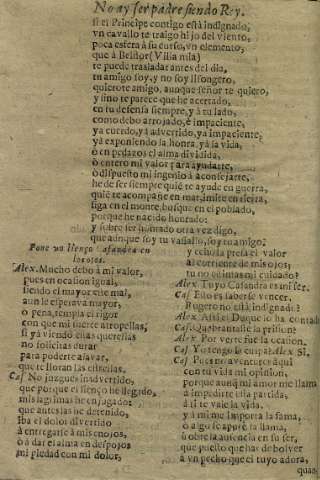 No ay ser padre siendo Rey.
si el Principe contigo está indignado,
vn cavallo te traigo hijo del viento,
poca esfera à su curso, vn elemento,
que à Belflor (Villa mia)
te puede trasladar antes del dia,
tu amigo soy, y no soy lisongero,
quierote amigo, aunque señor te quiero,
y sino te parece que he acertado,
en tu defensa siempre, y à tu lado,
como debo arrojado, è impaciente,
ya cuerdo, yà advertido, ya impaciente,
yà exponiendo la honra, yà la vida,
ò en pedazos el alma dividida,
ò entero mi valor para ayudarte,
ò dispuesto mi ingenio à aconsejarte,
he de ser siempre quiẽ te ayude en guerra,
quiẽ te acompañe en mar, imite en sierra,
siga en el monte, busque en el poblado,
porque he nacido honrado:
y sobre ser honrado otra vez digo,
que aunque soy tu vasallo, soy tu amigo.
Pone vn lienço Casandra en
los ojos.
Alex. Mucho debo à mi valor,
pues en ocasion igual,
siendo el mayor este mal,
aun le espera mayor,
ò pena, templa el rigor
con que mi suerte atropellas,
si yà viendo estas querellas
no solicitas durar
para poderte alavar,
que te lloran las estrellas.
Cas. No juzgues inadvertido,
que porque el fiẽpo he llegado,
mis lagrimas he enjugado:
que antes las he detenido,
iba el dolor divertido
à entregarse à mis enojos,
ò à dar el alma en despojos
mi piedad con mi dolor,
y cessò la presa el valor
al corriente de mis ojos;
tu no estimas mi cuidado?
Alex. Tuyo Casandra es mi ser.
Cas. Esto es saberse vencer,
Rugero no està indignado?
Alex. Assi el Duque lo ha contado
Cas. Quebrantaste la prision?
Alex. Por verte fue la ocasion.
Cas. Yo tengo la culpa? Alex. Si.
Cas. Pues no aventures aqui
con tu vida mi opinion,
porque aunq̃ mi amor me llama
à impedirte esta partida,
à ti te vale la vida,
y à mi me importa la fama,
ò algo se apure la llama,
ò obre la ausencia en su ser,
que puesto que has de bolver
à vn pecho que el tuyo adora,
quan-